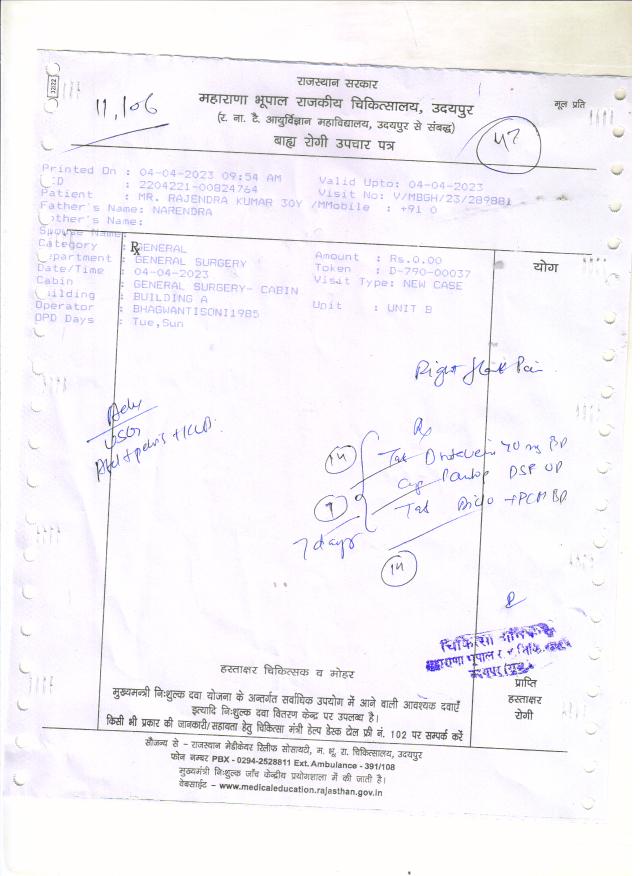 राजस्थान सरकार
महाराणा भूपाल राजकीय चिकित्सालय, उदयपुर
मूल प्रति
(र. ना. टै. आयुर्विज्ञान महाविद्यालय, उदयपुर से संबद्ध)
बाह्य रोगी उपचार पत्र
11,106
47
Printed On : 04-04-2023 09:54 AM Valid Upto: 04-04-2023
: 2204221-00824764 Visit No: V/MBGH/23/289881
Patient : MR. RAJENDRA KUMAR 30Y /MMobile : +91 0
Father's Name: NARENDRA
other's Name:
Spouse Name:
Category : GENERAL Amount : Rs.0.00
Rx
योग
epartment : GENERAL SURGERY Token : D-790-00037
Date/Time : 04-04-2023 Visit Type: NEW CASE
Cabin : GENERAL SURGERY- CABIN
uilding : BUILDING A Unit : UNIT B
Operator : BHAGWANTISONI1985
OPD Days : Tue,Sun
Right flank Pain
Adv
USG
Rx
14
Tab 40 mg BD
Cap Pantop DSR OD
Tab +PCM BD
7 days
14
हस्ताक्षर चिकित्सक व मोहर
प्राप्ति
हस्ताक्षर
रोगी
मुख्यमन्त्री निःशुल्क दवा योजना के अन्तर्गत सर्वाधिक उपयोग में आने वाली आवश्यक दवाएँ
इत्यादि निःशुल्क दवा वितरण केन्द्र पर उपलब्ध है।
किसी भी प्रकार की जानकारी/सहायता हेतु चिकित्सा मंत्री हेल्प डेस्क टोल फ्री नं. 102 पर सम्पर्क करें
सौजन्य से - राजस्थान मेडीकेयर रिलीफ सोसायटी, म. भू. रा. चिकित्सालय, उदयपुर
फोन नम्बर PBX - 0294-2528811 Ext. Ambulance - 391/108
मुख्यमंत्री निःशुल्क जाँच केन्द्रीय प्रयोगशाला में की जाती है।
वेबसाईट - www.medicaleducation.rajasthan.gov.in